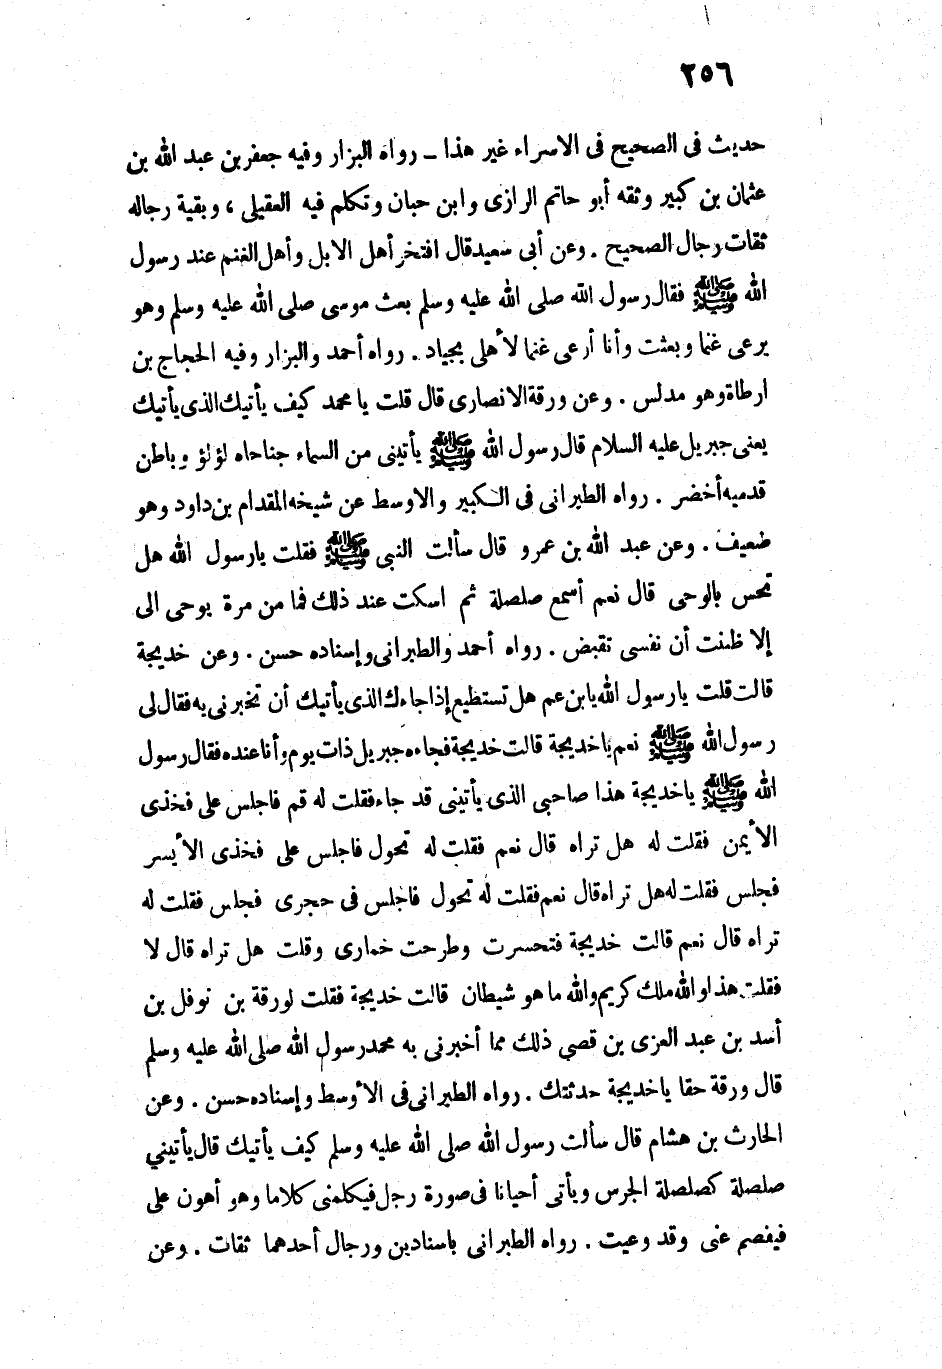 ٢٥٦
حديث فى الصحيح فى الاسراء غير هذا ــ رواه البزار وفيه جعفر بن عبد الله بن
عثمان بن كبير وثقه أبو حاتم الرازى وابن حبان وتكلم فيه العقيلى ، وبقية رجاله
ثقات رجال الصحيح . وعن أبى سعيد قال افتخر أهل الابل وأهل الغنم عند رسول
الله ﷺ فقال رسول الله صلى الله عليه وسلم بعث موسى صلى الله عليه وسلم وهو
يرعى غنما وبعثت وأنا أرعى غنما لأهلى بجياد . رواه أحمد والبزار وفيه الحجاج بن
ارطاة وهو مدلس . وعن ورقة الانصارى قال قلت يا محمد كيف يأتيك الذى يأتيك
يعنى جبريل عليه السلام قال رسول الله ﷺ يأتينى من السماء جناحاه لؤلؤ وباطن
قدميه أخضر . رواه الطبرانى فى الكبير والاوسط عن شيخه المقدام بن داود وهو
ضعيف . وعن عبد الله بن عمرو قال سألت النبى ﷺ فقلت يا رسول الله هل
تحس بالوحى قال نعم أسمع صلصلة ثم اسكت عند ذلك فما من مرة يوحى الى
إلا ظننت أن نفسى تقبض . رواه أحمد والطبرانى وإسناده حسن . وعن خديجة
قالت قلت يا رسول الله يا ابن عم هل تستطيع إذا جاءك الذى يأتيك أن تخبرنى به فقال لى
رسول الله ﷺ نعم يا خديجة قالت خديجة فجاءه جبريل ذات يوم وأنا عنده فقال رسول
الله ﷺ يا خديجة هذا صاحبى الذى يأتينى قد جاء فقلت له قم فاجلس على فخذى
الأيمن فقلت له هل تراه قال نعم فقلت له تحول فاجلس على فخذى الأيسر
فجلس فقلت له هل تراه قال نعم فقلت له تحول فاجلس فى حجرى فجلس فقلت له
تراه قال نعم قالت خديجة فتحسرت وطرحت خمارى وقلت هل تراه قال لا
فقلت هذا والله ملك كريم والله ما هو شيطان قالت خديجة فقلت لورقة بن نوفل بن
أسد بن عبد العزى بن قصي ذلك مما أخبرنى به محمد رسول الله صلى الله عليه وسلم
قال ورقة حقا يا خديجة حدثتك . رواه الطبرانى فى الأوسط وإسناده حسن . وعن
الحارث بن هشام قال سألت رسول الله صلى الله عليه وسلم كيف يأتيك قال يأتيني
صلصلة كصلصلة الجرس ويأتى أحيانا فى صورة رجل فيكلمنى كلاما وهو أهون على
فيفصم عنى وقد وعيت . رواه الطبرانى باسنادين ورجال أحدهما ثقات . وعن